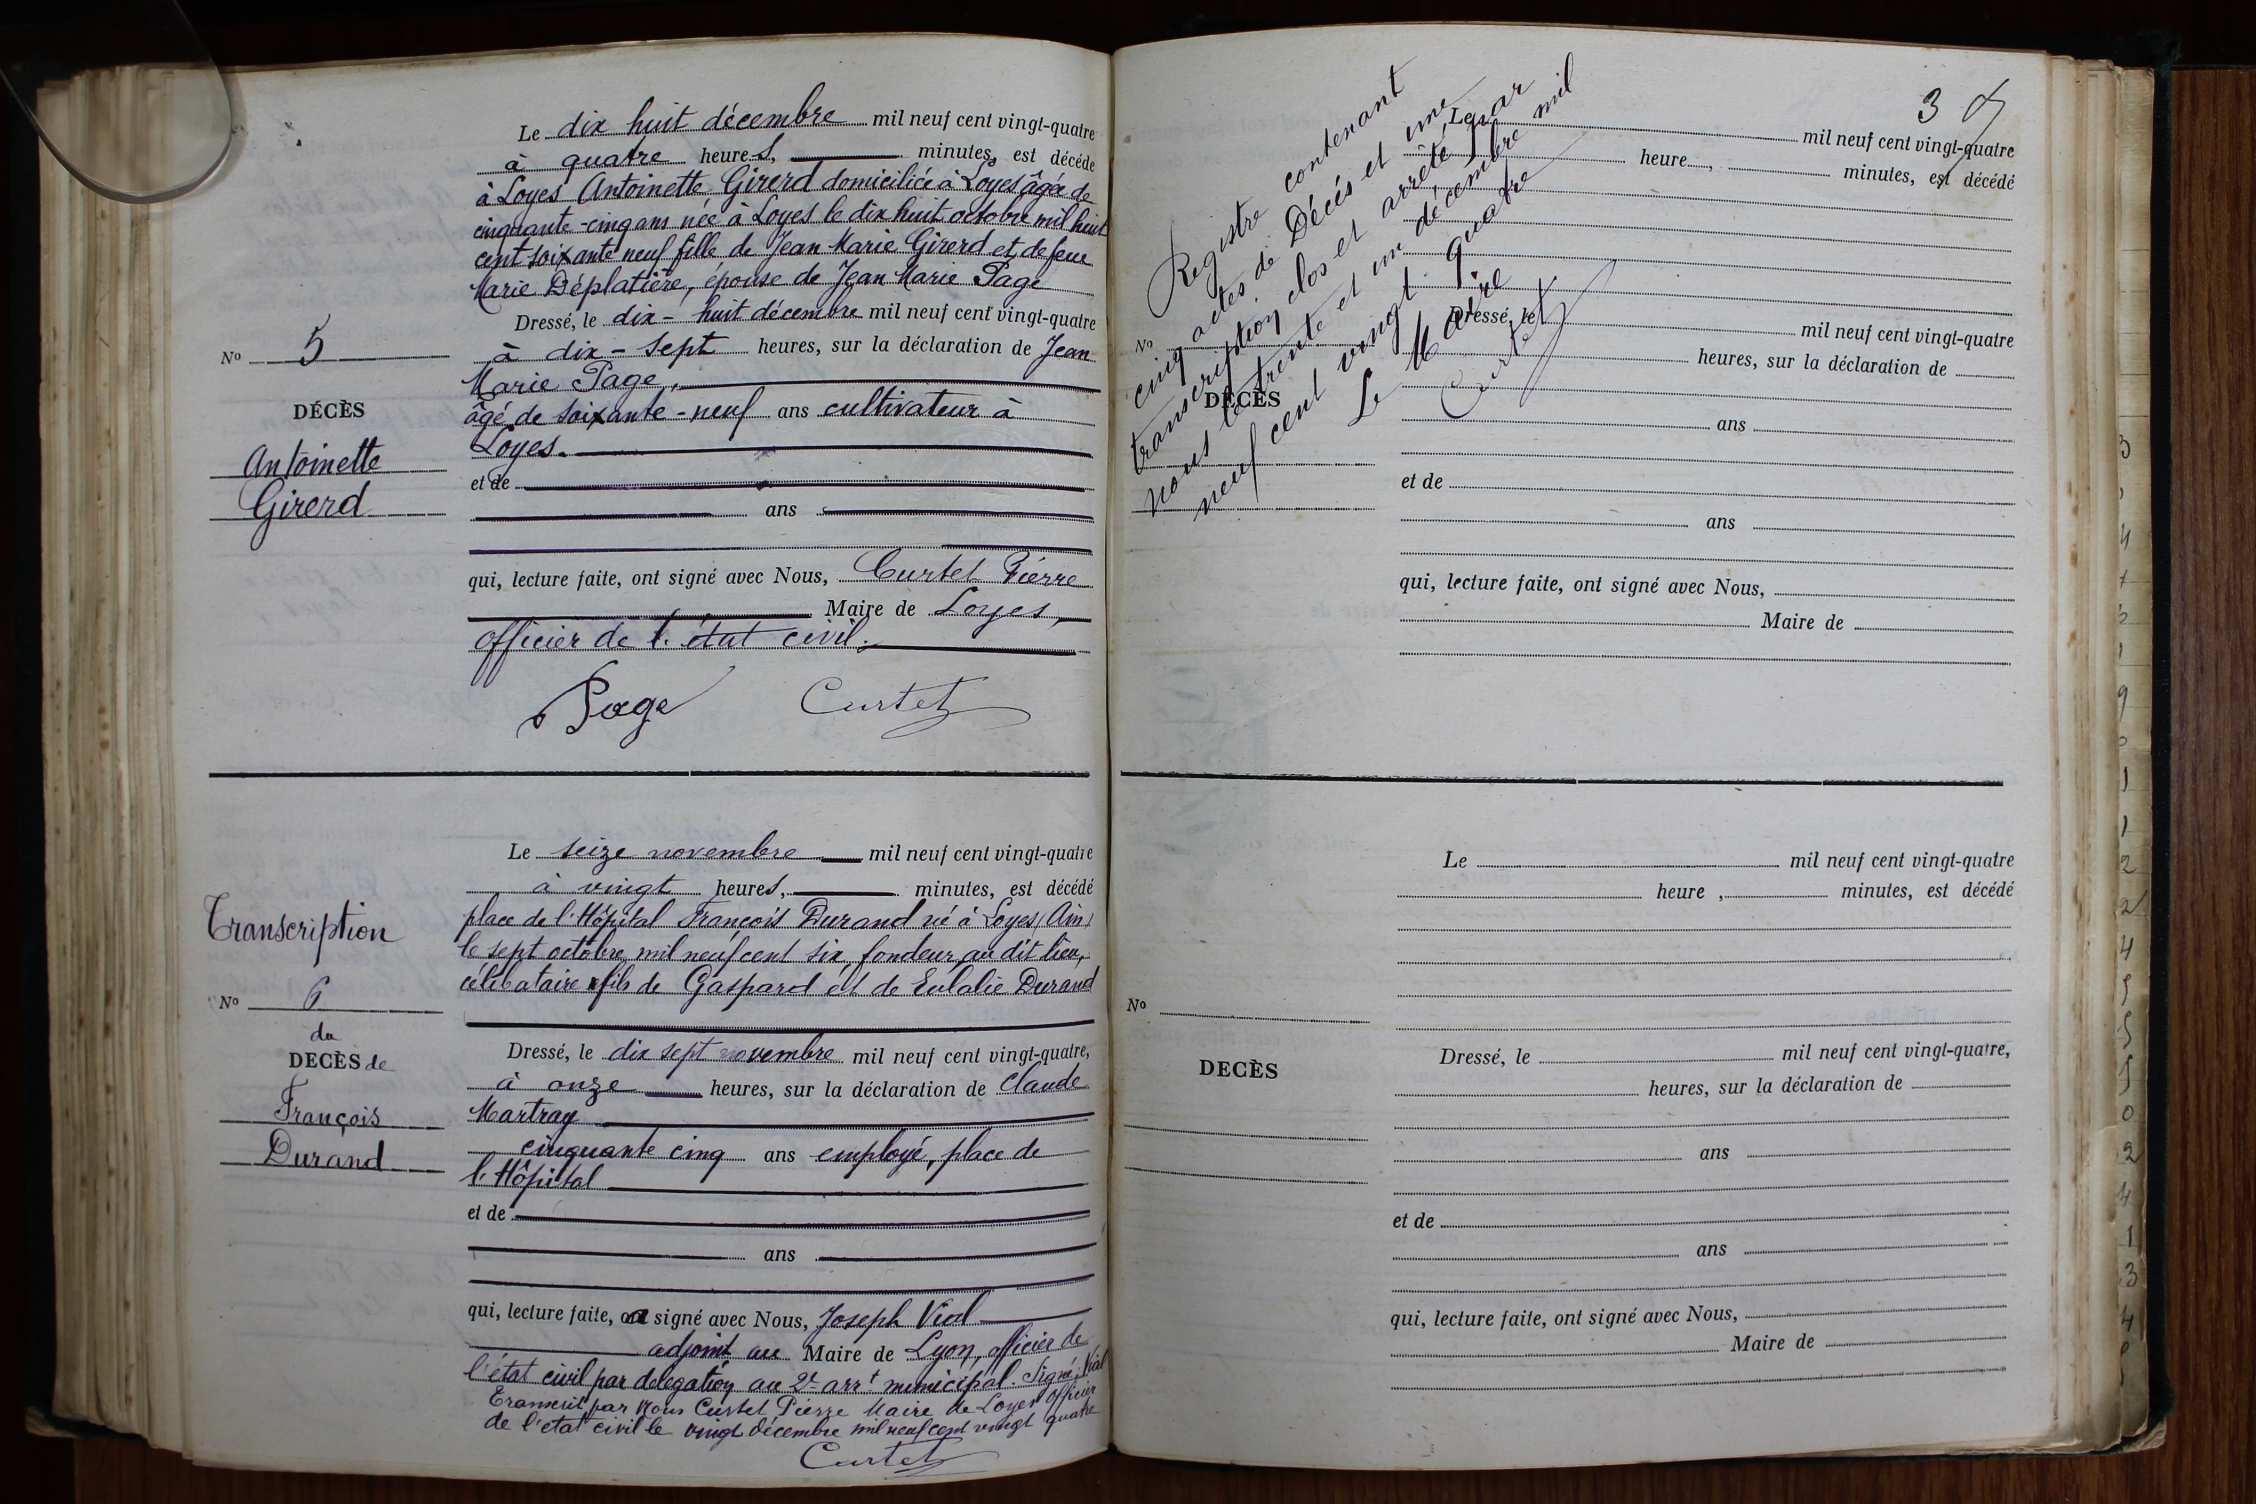 Le dix huit décembre mil neuf cent vingt-quatre
à quatre heures, minutes, est décédé
à Loyes Antoinette Girerd domiciliée à Loyes âgée de
cinquante-cinq ans née à Loyes le dix huit octobre mil huit
cent soixante neuf fille de Jean Marie Girerd et de feue
Marie Déplatière, épouse de Jean Marie Page
Dressé, le dix-huit décembre mil neuf cent vingt-quatre
à dix-sept heures, sur la déclaration de Jean
Marie Page,
âgé de soixante-neuf ans cultivateur à
Loyes.
et de
ans
qui, lecture faite, ont signé avec Nous, Curtet Pierre
Maire de Loyes,
officier de l'état civil.
Page Curtet
No 5
DÉCÈS
Antoinette
Girerd
Le seize novembre mil neuf cent vingt-quatre
à vingt heures, minutes, est décédé
place de l'Hôpital François Durand né à Loyes (Ain)
le sept octobre mil neuf cent six, fondeur, au dit lieu,
célibataire fils de Gaspard et de Eulalie Durand
Dressé, le dix sept novembre mil neuf cent vingt-quatre,
à onze heures, sur la déclaration de Claude
Martray
cinquante cinq ans employé, place de
l'Hôpital
et de
ans
qui, lecture faite, a signé avec Nous, Joseph Vial
adjoint au Maire de Lyon, officier de
l'état civil par delegation au 2e arrt municipal. Signé: Vial
Transcrit par Nous Curtet Pierre Maire de Loyes officier
de l'etat civil le vingt décembre mil neuf cent vingt quatre
Curtet
Transcription
No 6
du
DECÈS de
François
Durand
3
Registre contenant
cinq actes de Décès et une
transcription, clos et arrêté par
nous le trente et un décembre mil
neuf cent vingt quatre
Le Maire
Curtet
Le mil neuf cent vingt-quatre
heure, minutes, est décédé
Dressé, le mil neuf cent vingt-quatre
heures, sur la déclaration de
ans
et de
ans
qui, lecture faite, ont signé avec Nous,
Maire de
No
DÉCÈS
Le mil neuf cent vingt-quatre
heure, minutes, est décédé
Dressé, le mil neuf cent vingt-quatre,
heures, sur la déclaration de
ans
et de
ans
qui, lecture faite, ont signé avec Nous,
Maire de
No
DECÈS